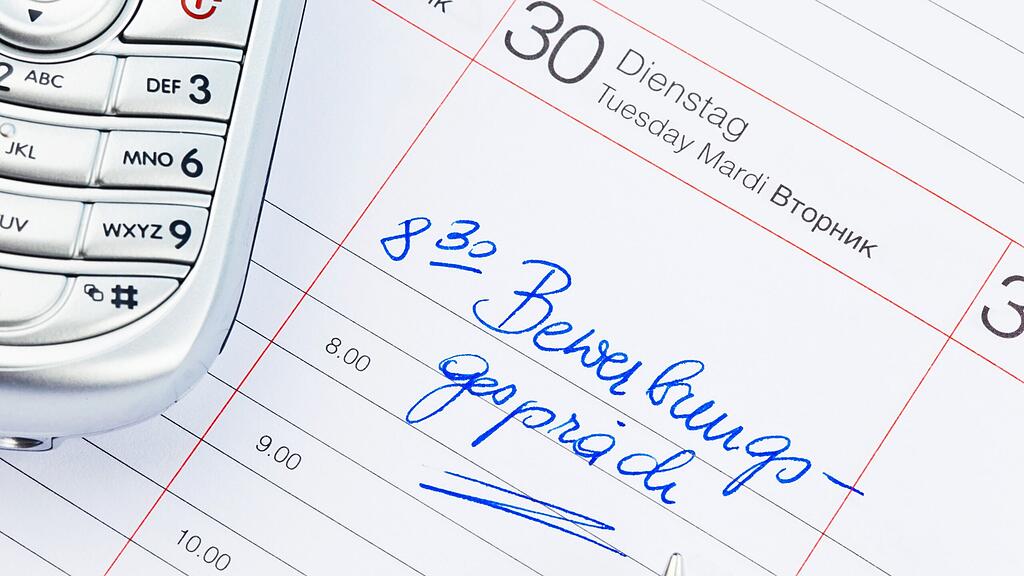 2 ABC
DEF 3
JKL
MNO 6
UV
WXYZ 9
#
30 Dienstag
Tuesday Mardi Вторник
8 30 Bewerbungs-
gespräch
8.00
9.00
10.00
3